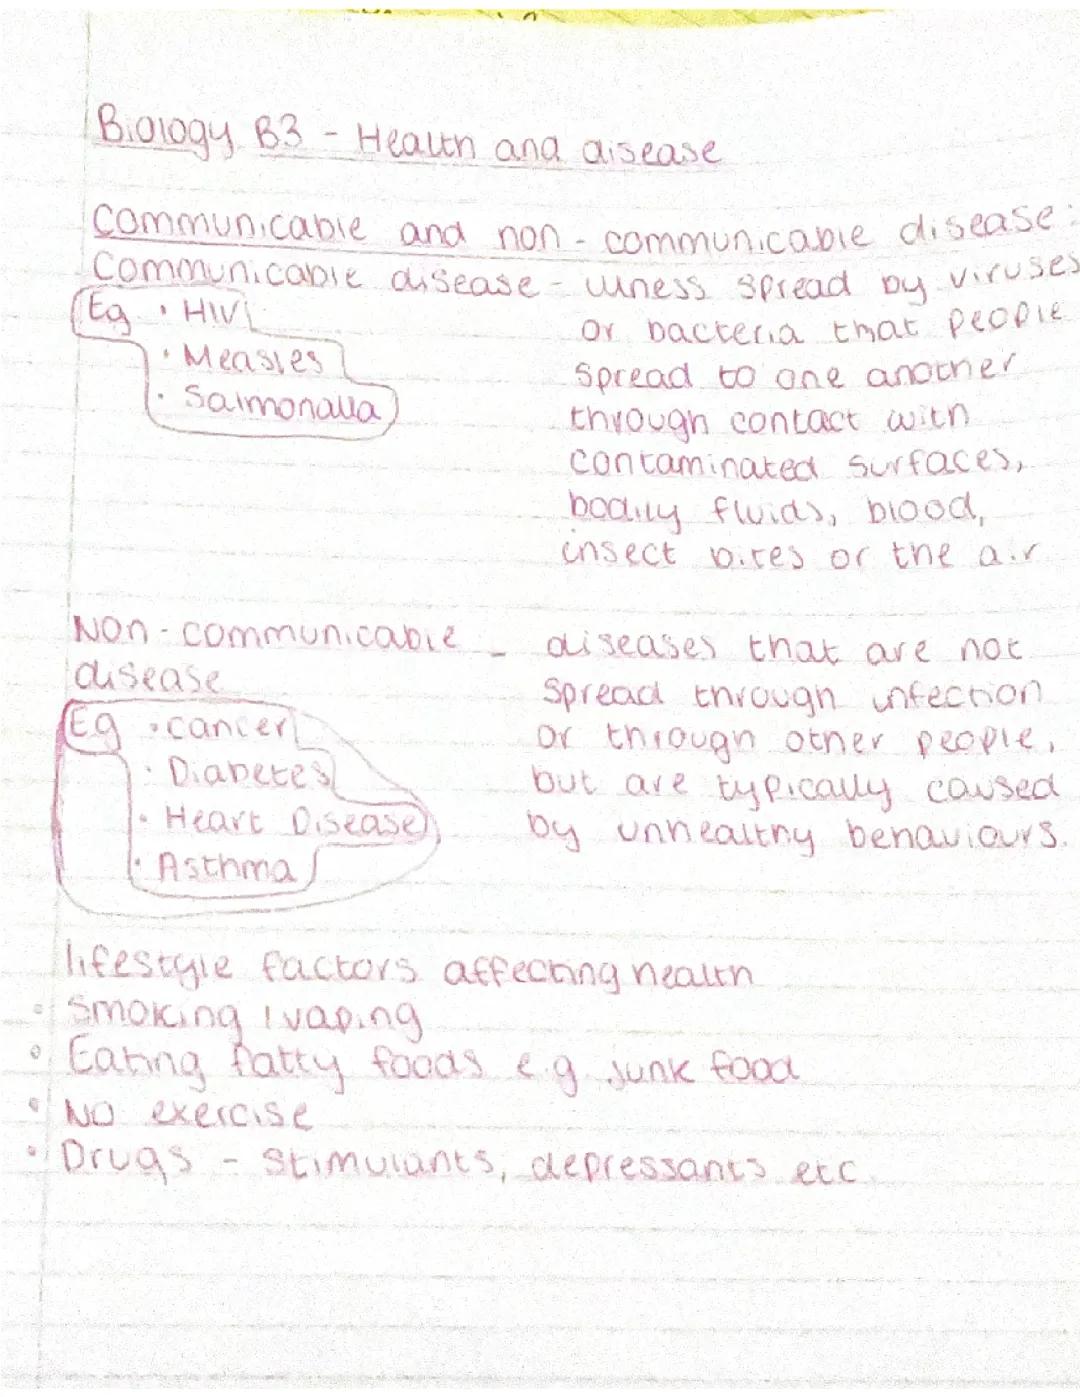 Biology B3 - Health and disease
Communicable and non-communicable disease:
Communicable disease - illness spread by viruses
Eg • HIV or bacteria that people
• Measles spread to one another
• Salmonalla through contact with
contaminated surfaces,
bodily fluids, blood,
insect bites or the air
Non-communicable - diseases that are not
disease spread through infection
Eg • cancer or through other people,
• Diabetes but are typically caused
• Heart Disease by unhealthy behaviours.
• Asthma
lifestyle factors affecting health
• Smoking / vaping
• Eating fatty foods e.g. junk food
• No exercise
• Drugs - Stimulants, depressants etc.